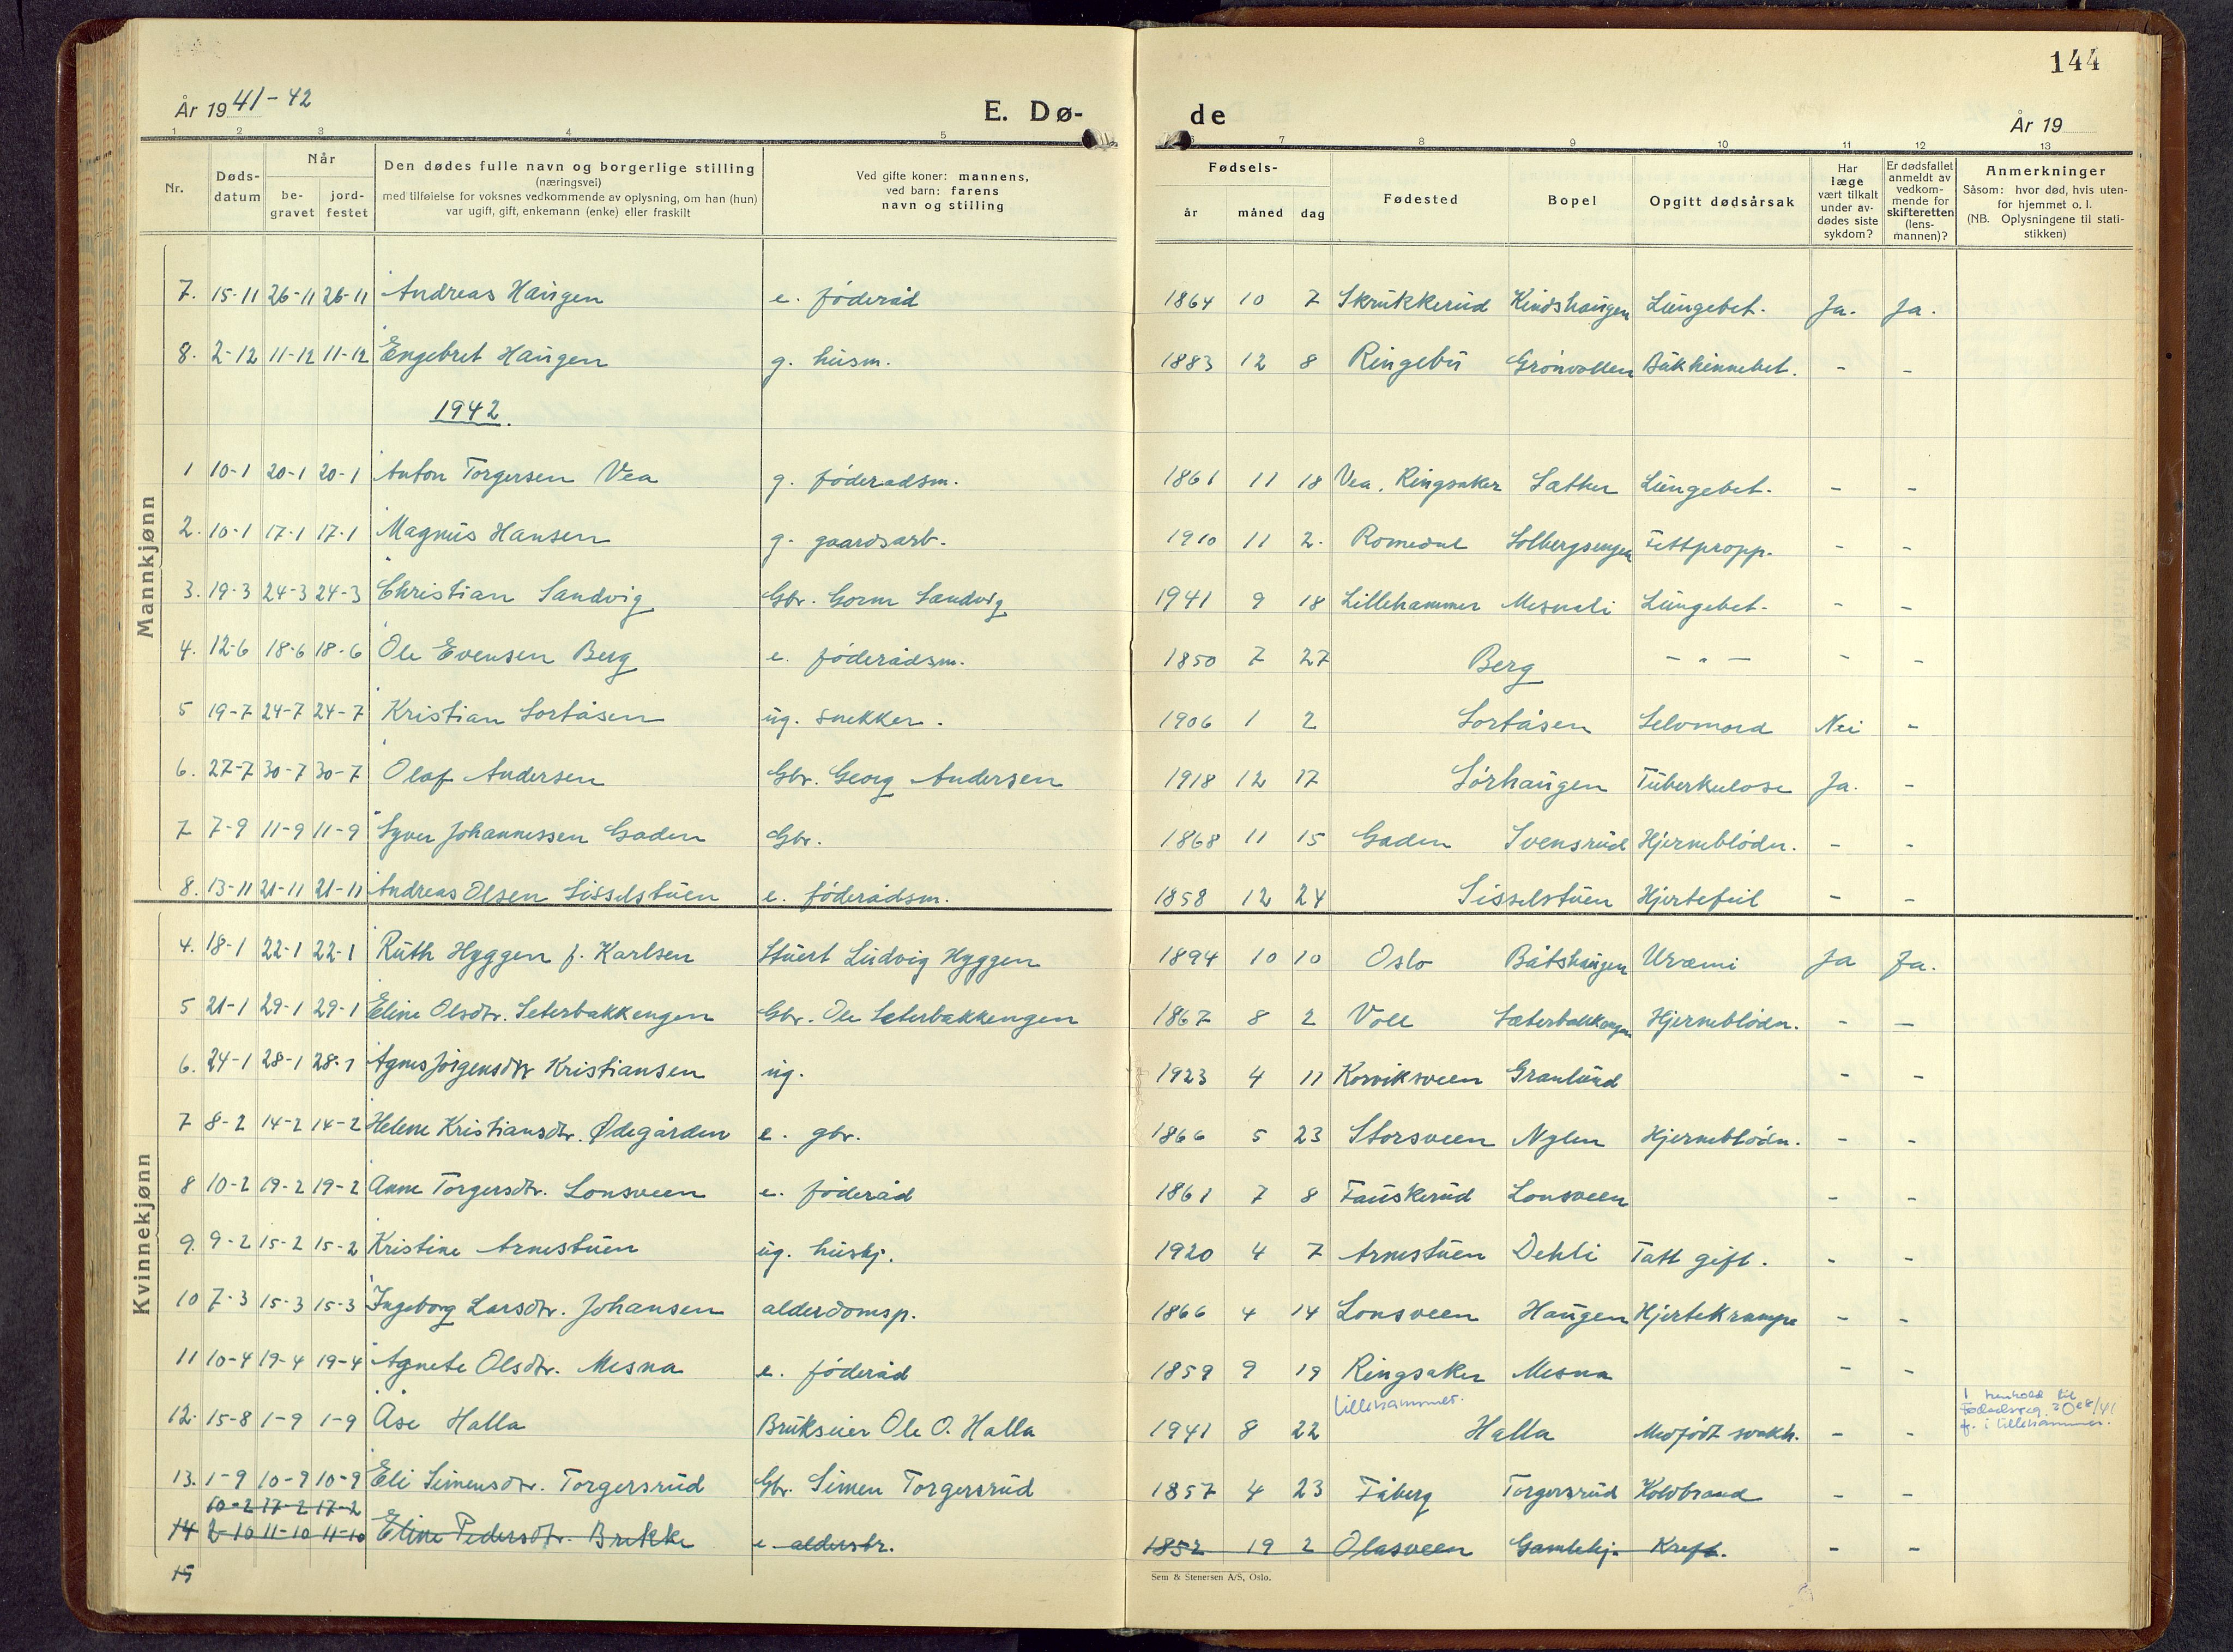 144
År 1941-42
E. Dø-
de
År 19
1 2 3 4 5
6 7 8 9 10 11 12 13
Nr.
Døds-
datum
Når
be-
gravet
jord-
festet
Den dødes fulle navn og borgerlige stilling
(næringsvei)
med tilføielse for voksnes vedkommende av oplysning, om han (hun)
var ugift, gift, enkemann (enke) eller fraskilt
Ved gifte koner: mannens,
ved barn: farens
navn og stilling
Fødsels-
år måned dag
Fødested
Bopel
Opgitt dødsårsak
Har
læge
vært tilkalt
under av-
dødes siste
sykdom?
Er dødsfallet
anmeldt av
vedkom-
mende for
skifteretten
(lens-
mannen)?
Anmerkninger
Såsom: hvor død, hvis uten-
for hjemmet o. l.
(NB. Oplysningene til stati-
stikken)
Mannkjønn
7. 15-11 26-11 26-11 Andreas Haugen e. föderåd 1864 10 7 Skrukkerud Kindshaugen Lungebet. Ja. Ja.
8. 2-12 11-12 11-12 Engebret Haugen g. husm. 1883 12 8 Ringebu Grönvollen Bukhinnebet. - -
1942.
1 10-1 20-1 20-1 Anton Torgersen Vea g. föderadsm. 1861 11 18 Vea, Ringsaker Sæther Lungebet. - -
2. 10-1 17-1 17-1 Magnus Hansen g. gaardsarb. 1910 11 2. Romedal Solbergsengen Fettpropp. - -
3. 19-3 24-3 24-3 Christian Sandvig Gbr. Gorm Sandvig 1941 9 18 Lillehammer Mesnali Lungebet. - -
4. 12-6 18-6 18-6 Ole Evensen Berg e. föderådsm. 1850 7 27 Berg - " - - -
5 19-7 24-7 24-7 Kristian Sortåsen ug. snekker. 1906 1 2 Sortåsen Selvmord Nei -
6. 27-7 30-7 30-7 Olaf Andersen Gbr. Georg Andersen 1918 12 17 Sörhaugen Tuberkulose Ja. -
7 7-9 11-9 11-9 Syver Johannessen Gaden Gbr. 1868 11 15 Gaden Svensrud Hjerneblödn. - -
8. 13-11 21-11 21-11 Andreas Olsen Sisselstuen e. föderådsm. 1858 12 24 Sisselstuen Hjertefeil - -
Kvinnekjønn
4. 18-1 22-1 22-1 Ruth Hyggen f. Karlsen Stuert Ludvig Hyggen 1894 10 10 Oslo Båtshaugen Uræmi Ja Ja.
5 21-1 29-1 29-1 Eline Olsdtr. Seterbakkengen Gbr. Ole Seterbakkengen 1867 8 2 Voll Sæterbakkengen Hjerneblödn. - -
6. 24-1 28-1 28-1 Agnes Jörgensdtr Kristiansen ug. 1923 4 11 Korviksveen Granlund - -
7 8-2 14-2 14-2 Helene Kristiansdtr. Ødegården e. gbr. 1866 5 23 Storsveen Nylen Hjerneblödn. - -
8 10-2 19-2 19-2 Anne Torgersdtr. Lonsveen e. föderåd 1861 7 8 Fauskerud Lonsveen - -
9. 9-2 15-2 15-2 Kristine Arnestuen ug. hushj. 1920 4 7 Arnestuen Dehli Tatt gift. - -
10 7-3 15-3 15-3 Ingeborg Larsdtr. Johansen alderdomsp. 1866 4 14 Lonsveen Haugen Hjertekrampe - -
11 10-4 19-4 19-4 Agnete Olsdtr. Mesna e. föderåd 1859 9 19 Ringsaker Mesna - -
12. 15-8 1-9 1-9 Åse Halla Brukseier Ole O. Halla 1941 8 22 Lillehammer. Halla Medfödt svakh. - -
I henhold til
f. i Lillehammer.
13. 1-9 10-9 10-9 Eli Simensdtr. Torgersrud Gbr. Simen Torgersrud 1857 4 23 Fåberg Torgersrud Koldbrand - -
10-2 17-2 17-2
14 2-10 11-10 11-10 Eline Pedersdtr. Brekke e. alderstr. 1852 19 2 Olasveen Gamlehj. Kreft. - -
15
Sem & Stenersen A/S, Oslo.